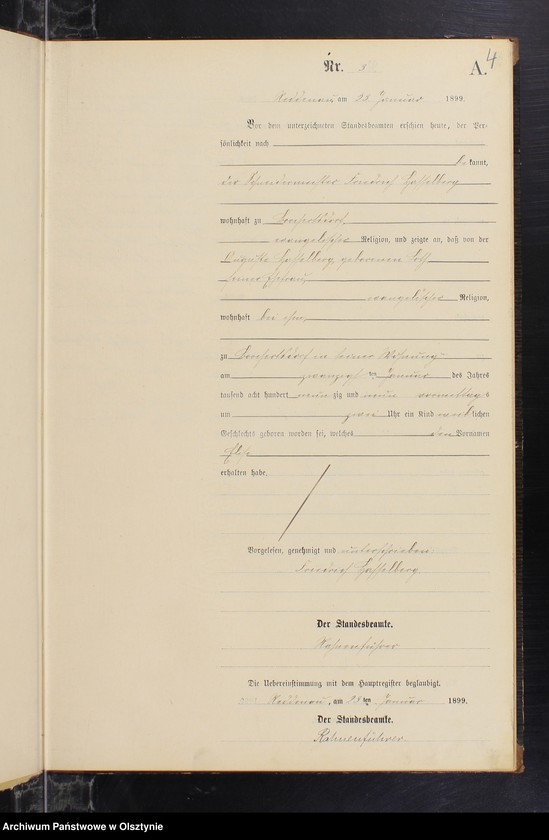 4
Nr. 3
A.
Reddenau am 23. Januar 1899.
Vor dem unterzeichneten Standesbeamten erschien heute, der Per-
sönlichkeit nach
be kannt,
der Schneidermeister Friedrich Hasselberg
wohnhaft zu
evangelischer Religion, und zeigte an, daß von der
Auguste Hasselberg, geborenen
seiner Ehefrau,
evangelischer Religion,
wohnhaft bei ihm,
zu in seiner Wohnung
am zwanzigsten Januar des Jahres
tausend acht hundert neunzig und neun vormittags
um zwei Uhr ein Kind weiblichen
Geschlechts geboren worden sei, welches den Vornamen
Elise
erhalten habe.
Vorgelesen, genehmigt und unterschrieben
Friedrich Hasselberg
Der Standesbeamte.
Rahnenführer
Die Uebereinstimmung mit dem Hauptregister beglaubigt.
Reddenau, am 23 ten Januar 1899.
Der Standesbeamte.
Rahnenführer
Archiwum Państwowe w Olsztynie